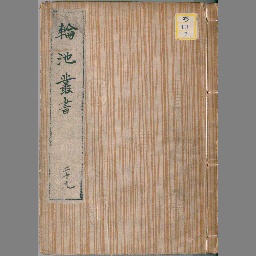 輪池叢書
二十九